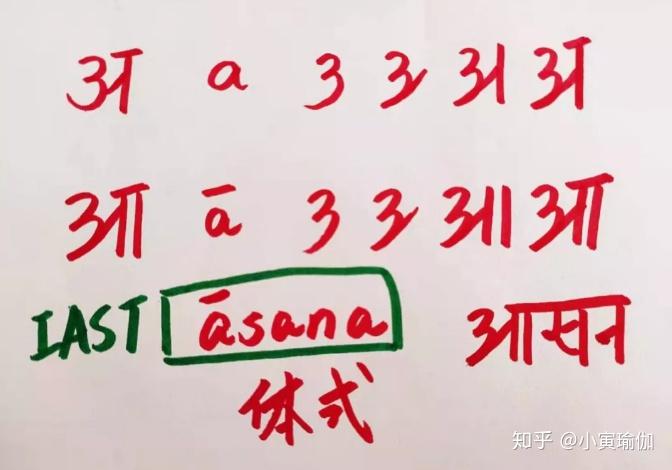 अ a ३ उ अ अ
आ ā ३ उ आ आ
IAST āsana आसन
体式
知乎 @小寅瑜伽